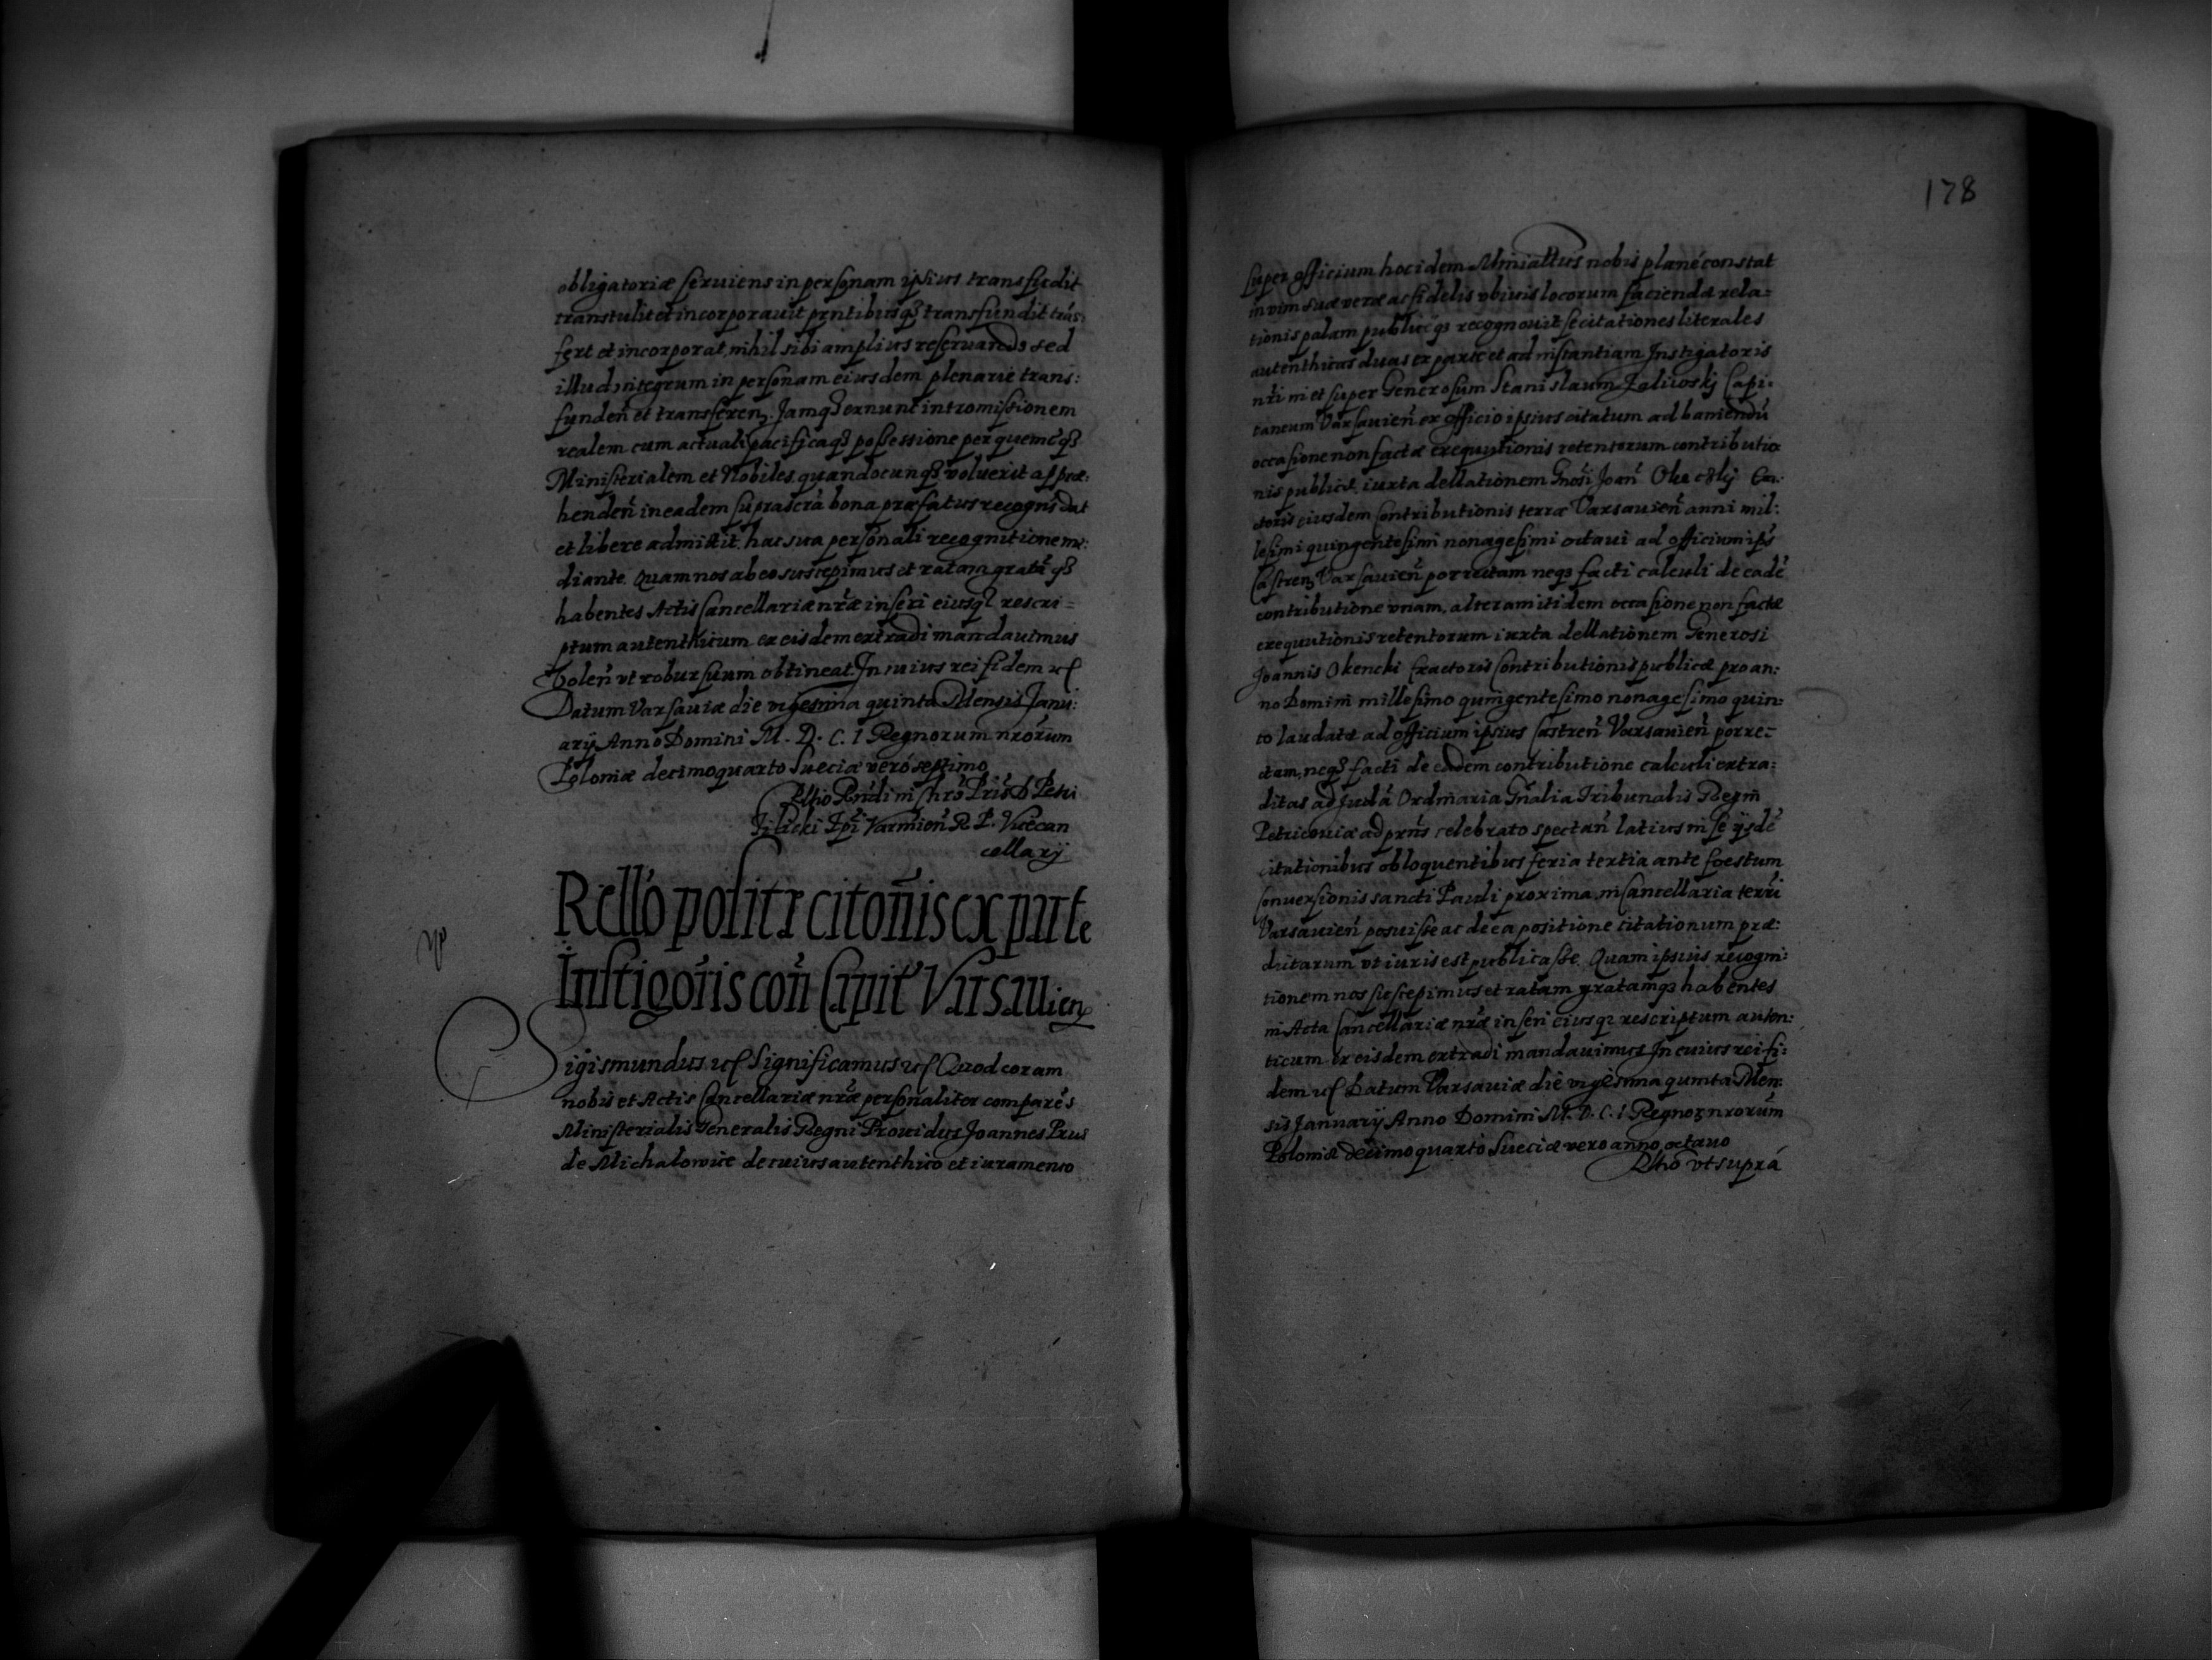 obligatoriæ seruiens in personam ipsius transfudit
transtulit et incorporauit prntibusq3 transfundit trās:
fert et incorporat, nihil sibi amplius reseruando sed
illud integrum in personam eiusdem plenarie trans:
funden̄ et transferen3. Jamq3 ex nunc intromissionem
realem cum actuali pacificaq3 possessione per quemc̄q3
Ministerialem et Nobiles quandocunq3 voluerit appræ:
henden̄ in eadem suprascrā bona præfatus recognos̄ dat
et libere admittit hac sua personali recognitione me:
diante. Quam nos ab eo suscepimus et ratam gratāq3
habentes Actis Cancellariæ nr̄æ inseri eiusq3 rescri=
ptum autenthicum ex eisdem extradi mandauimus
Volen̄ vt robur suum obtineat. In cuius rei fidem etc
Datum Varsauiæ die vigesima quinta Mensis Janu:
arÿ Anno Domini M. D. C. I Regnorum nrōrum
Poloniæ decimoquarto Sueciæ vero septimo
Rltio Rndi in Chrō Pris D Petri
Tilicki Epī Varmien̄ R. P. Vicecan
cellarÿ
Rellō positæ citon̄is ex parte
Instigor̄is con̄ Capit̄ Varsauien
Sigismundus etc Significamus etc Quod coram
nobis et Actis Cancellariæ nr̄æ personaliter comparēs
Ministerialis Generalis Regni Prouidus Joannes Prus
de Michalowice de cuius autenthico et iuramento
178
super officium hoc idem Mniālltus nobis plané constat
in vim suæ veræ ac fidelis vbiuis locorum faciendæ rela=
tionis palam publicēq3 recognouit se citationes literales
autenthicas duas ex parte et ad instantiam Instigatoris
nr̄i in et super Generosum Stanislaum Zaliwoskj Capi:
taneum Varsauien̄ ex officio ipsius citatum ad baniendū
occasione non factæ exequutionis retentorum contributio
nis publicæ iuxta dellationem Gnōsi Joan̄ Exa:
ctoris eiusdem Contributionis terræ Varsauien̄ anni mil:
lesimi quingentesimi nonagesimi octaui ad officium ips̄
Castren3 Varsauien̄ porrectam neq3 facti calculi de eadē
contributione vnam, alteram itidem occasione non factæ
exequutionis retentorum iuxta dellationem Generosi
Joannis Okencki Exactoris Contributionis publicæ pro an:
no Domini millesimo quingentesimo nonagesimo quin:
to laudatæ ad officium ipsius Castren̄ Varsauien̄ porre=
ctam, neq3 facti de eadem contributione calculi extra:
ditas ad Judā Ordinaria Gn̄alia Tribunalis Regni
Petricouiæ ad prn̄s celebrato spectan̄ latius in se ijsdē
citationibus obloquentibus feria tertia ante foestum
Conuersionis sancti Pauli proxima in Cancellaria terr̄i
Varsauien̄ posuisse ac de ea positione citationum præ:
dictarum vt iuris est publicasse. Quam ipsius recogni:
tionem nos suscepimus et ratam gratamq3 habentes
in Acta Cancellariæ nr̄æ inseri eiusq3 rescriptum auten:
ticum ex eisdem extradi mandauimus In cuius rei fi:
dem etc Datum Varsauiæ die vigesima quinta Men:
sis Januarÿ Anno Domini M. D. C. I Regno3 nrorūm
Poloniæ decimoquarto Sueciæ vero anno octauo
Rltio vt suprá